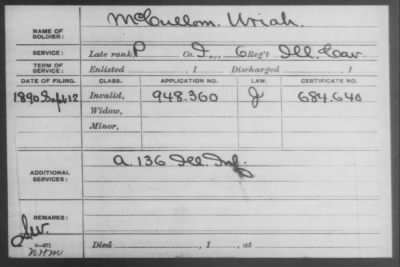 NAME OF SOLDIER: McCullom, Uriah.
SERVICE: Late rank P Co. I, 6 Reg't Ill. Cav
TERM OF SERVICE: Enlisted , 1 Discharged , 1
DATE OF FILING. CLASS. APPLICATION NO. LAW. CERTIFICATE NO.
1890 Sept 12 Invalid, 948.360 J 684.640
Widow,
Minor,
ADDITIONAL SERVICES: A. 136 Ill. Inf.
REMARKS:
Died , 1 , at